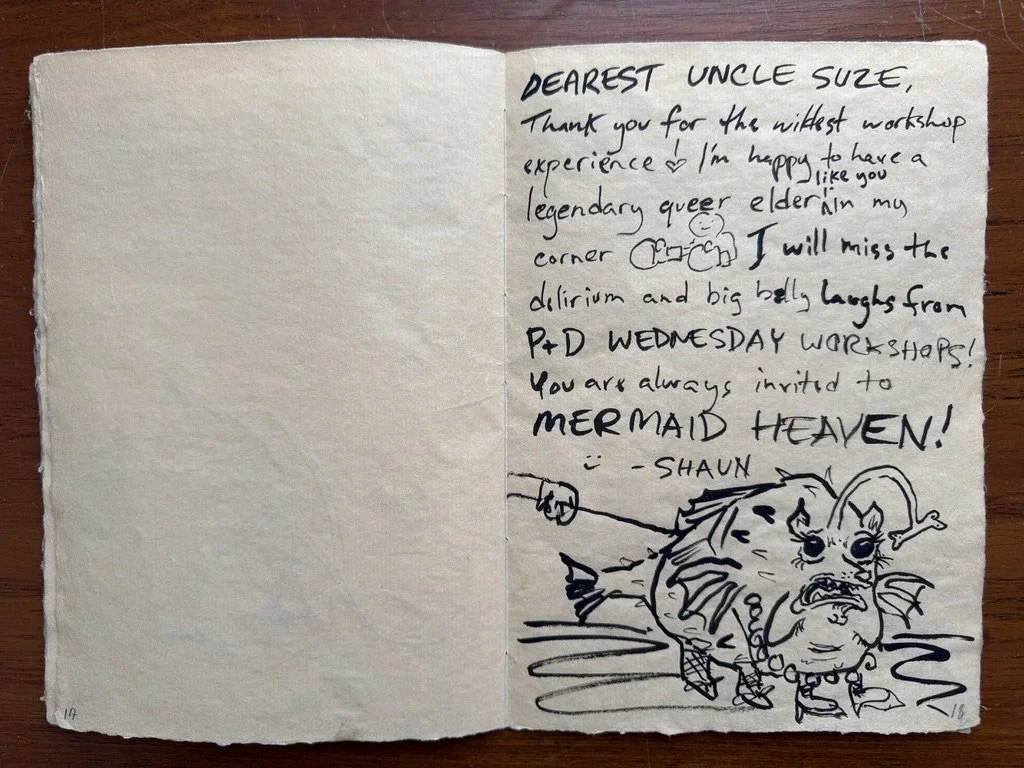 DEAREST UNCLE SUZE,
Thank you for the wildest workshop
experience! I'm happy to have a
like you
legendary queer elder in my
corner I will miss the
delirium and big belly laughs from
P+D WEDNESDAY WORKSHOPS!
You are always invited to
MERMAID HEAVEN!
:) - SHAUN
17
18